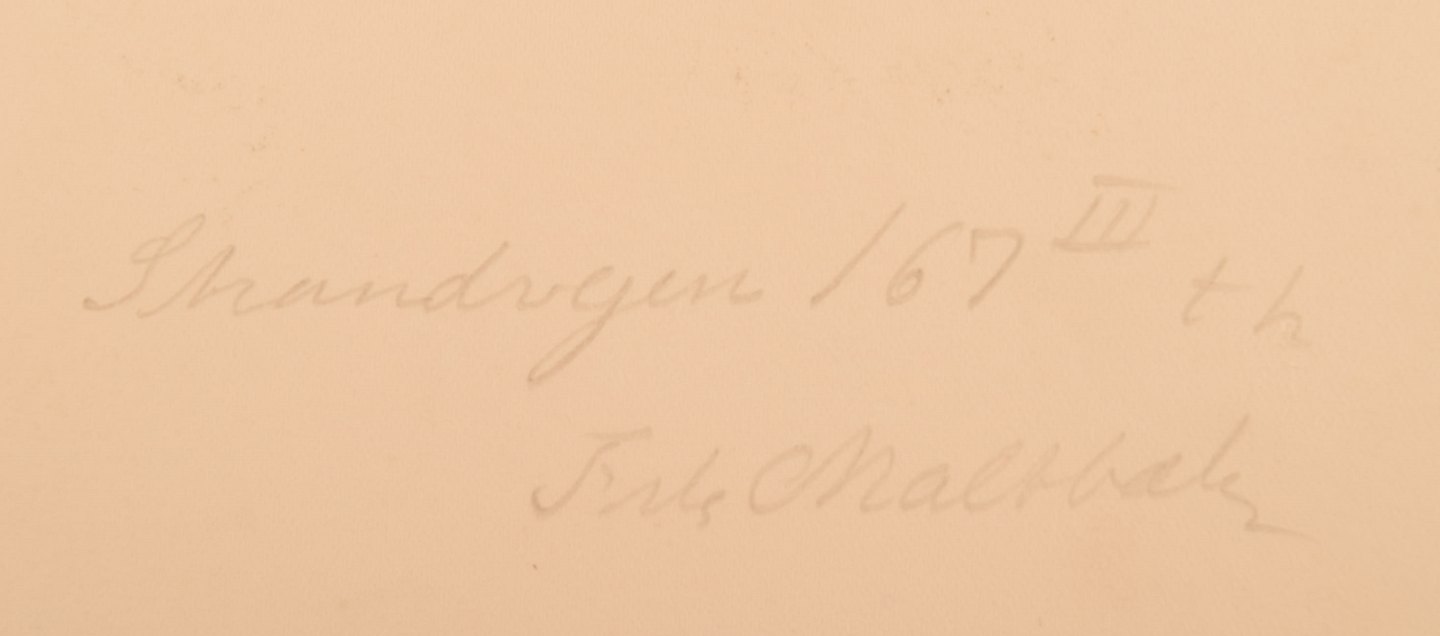 Strandvejen 167 III th
Frk. Maltbæk